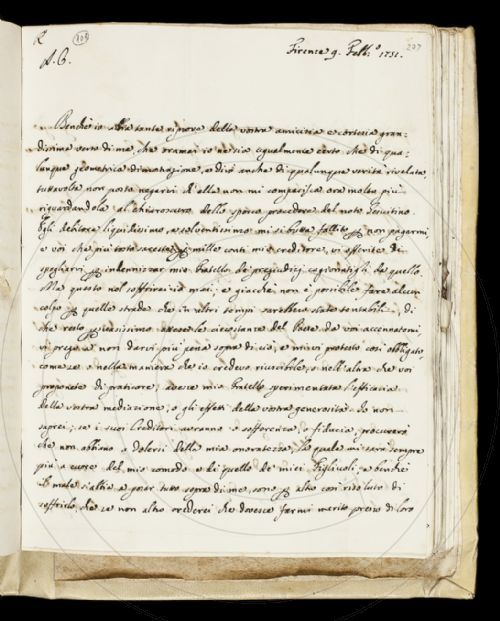 R
A. C.
Firenze 9. Febb.º 1751.
207
Benchè io abbia tante riprove della vostra amicizia e cortesia gran-
dissima verso di me, che oramai io ne sia egualmente certo che di qua-
lunque geometrica dimostrazione, e dirò anche di qualunque verità rivelata,
tuttavolta non posso negarvi ch'ella non mi comparisca ora molto più
riguardandola al chiaroscuro dello sporco procedere del noto
Egli debitore liquidissimo, e solventissimo mi si butta fallito p non pagarmi
e voi che più tosto sareste p mille conti mio creditore, vi offerite di
spogliarvi p indennizzar mio fratello de' pregiudizj cagionatigli da quello.
Ma questo nol soffrirei io mai; e giacchè non è possibile fare alcun
colpo p quelle strade che in altri tempi sarebbero state tentabili, di
che resto attese le circostanze del Paese da voi accennatemi,
vi prego a non darvi più pena sopra di ciò, e mi vi protesto così obbligato,
come se o nella maniera che io credevo riuscibile, o nell'altra che voi
proponete di praticare, avesse mio fratello sperimentata l'efficacia
della vostra mediazione, o gli effetti della vostra generosità. Io non
saprei; se i suoi Creditori avranno o sofferenza, o fiducia, procurerò
che non abbiano a dolersi della mia onoratezza, la quale mi sarà sempre
più a cuore del mio comodo e di quello de' miei Figliuoli; e benchè
il male sia a posar tutto sopra di me, sono p altro così risoluto di
soffrirlo, che se non altro crederei che dovesse farmi merito presso di loro